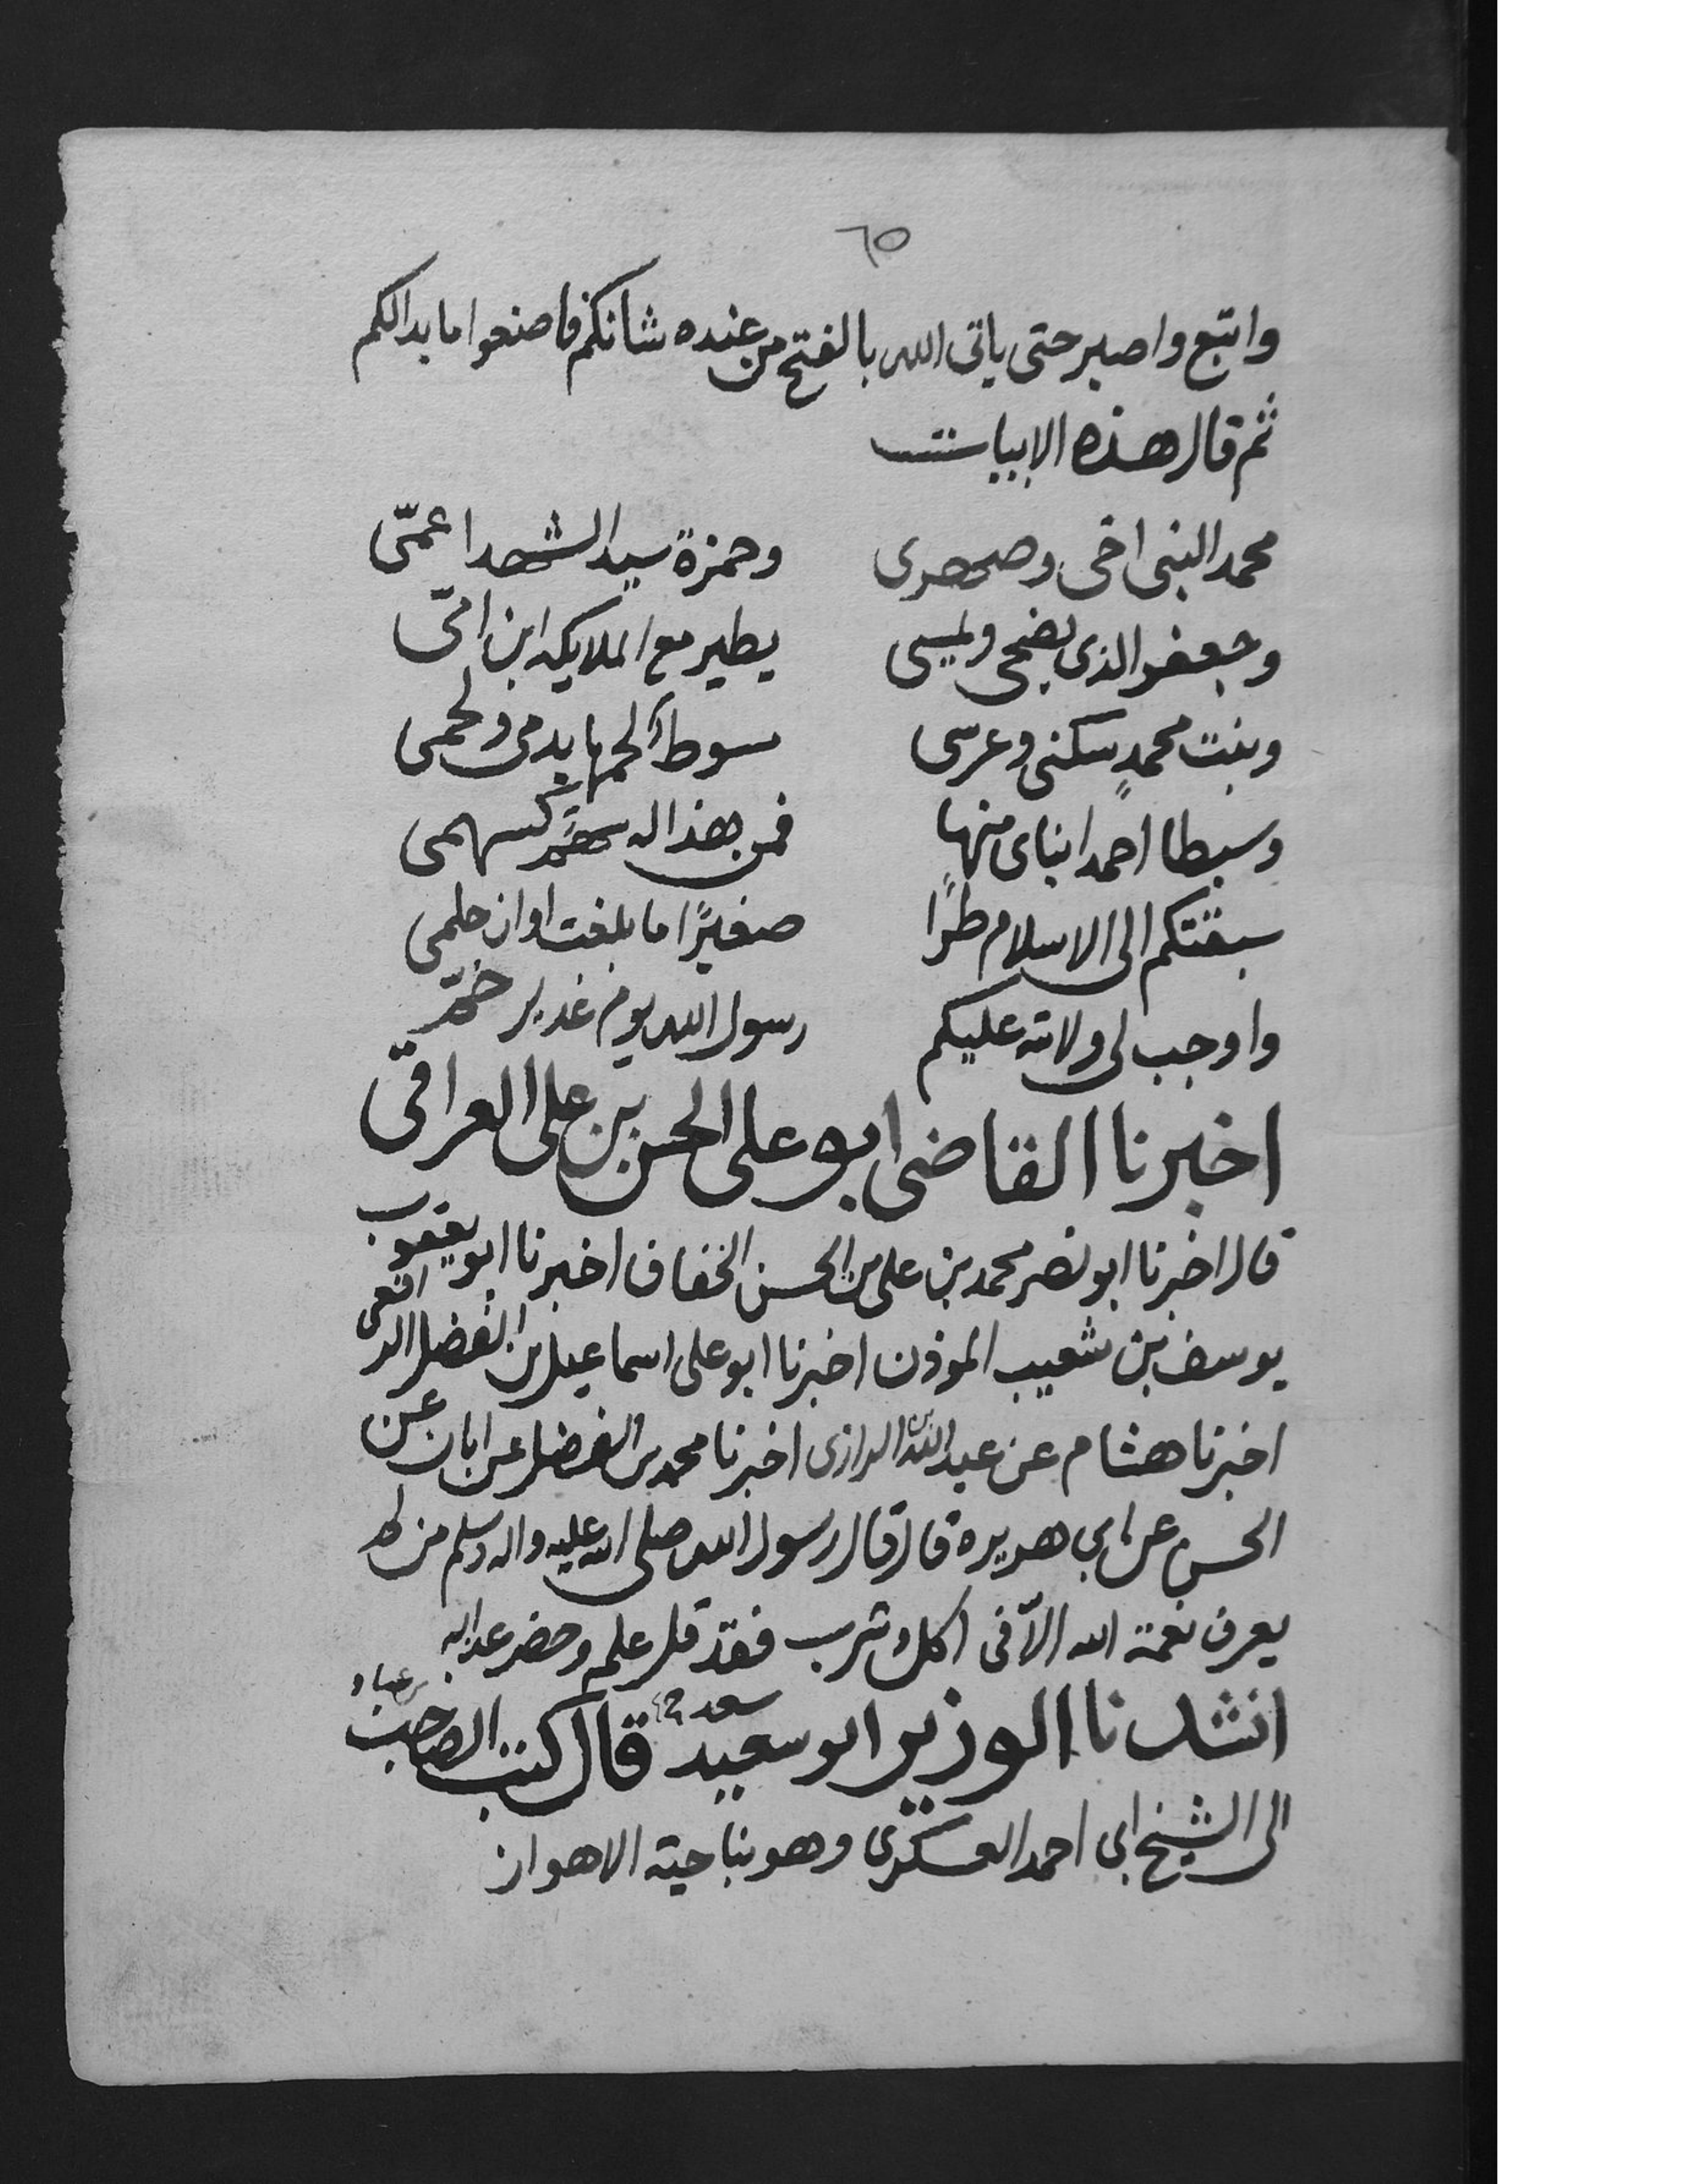 ٦٥
واتبع واصبر حتى ياتى الله بالفتح من عنده شانكم فاصنعوا ما بدالكم
ثم قال هذه الابيات
محمد النبى اخى وصهرى وحمزة سيد الشهدا عمّى
وجعفر الذى يضحى ويمسى يطير مع الملايكه ابن امّى
وبنت محمدٍ سكنى وعرسى مسوط لحمها بدمى ولحمى
وسبطا احمد ابناى منها فمن هذا له سهم كسهمى
سبقتكم الى الاسلام طرًا صغيرًا ما بلغت اوان حلمى
واوجب لى ولاته عليكم رسول الله يوم غدير خمّ
اخبرنا القاضى ابو على الحسن بن على العراقى
قال اخبرنا ابو نصر محمد بن على بن الحسن الخفاف اخبرنا ابو يعقوب
يوسف بن شعيب الموذن اخبرنا ابو على اسماعيل بن الفضل الرافعى
اخبرنا هشام عن عبد الله الرازى اخبرنا محمد بن الفضل عن ابان عن
الحسن عن ابى هريرة قال قال رسول الله صلى الله عليه واله وسلم من لم
يعرف نعمة الله الّا فى اكل وشرب فقد قل علمه وحضر عذابه
انشدنا الوزير ابو سعيد سعد قال كتب الصاحب بن عباد
الى الشيخ ابى احمد العسكرى وهو بناحية الاهواز